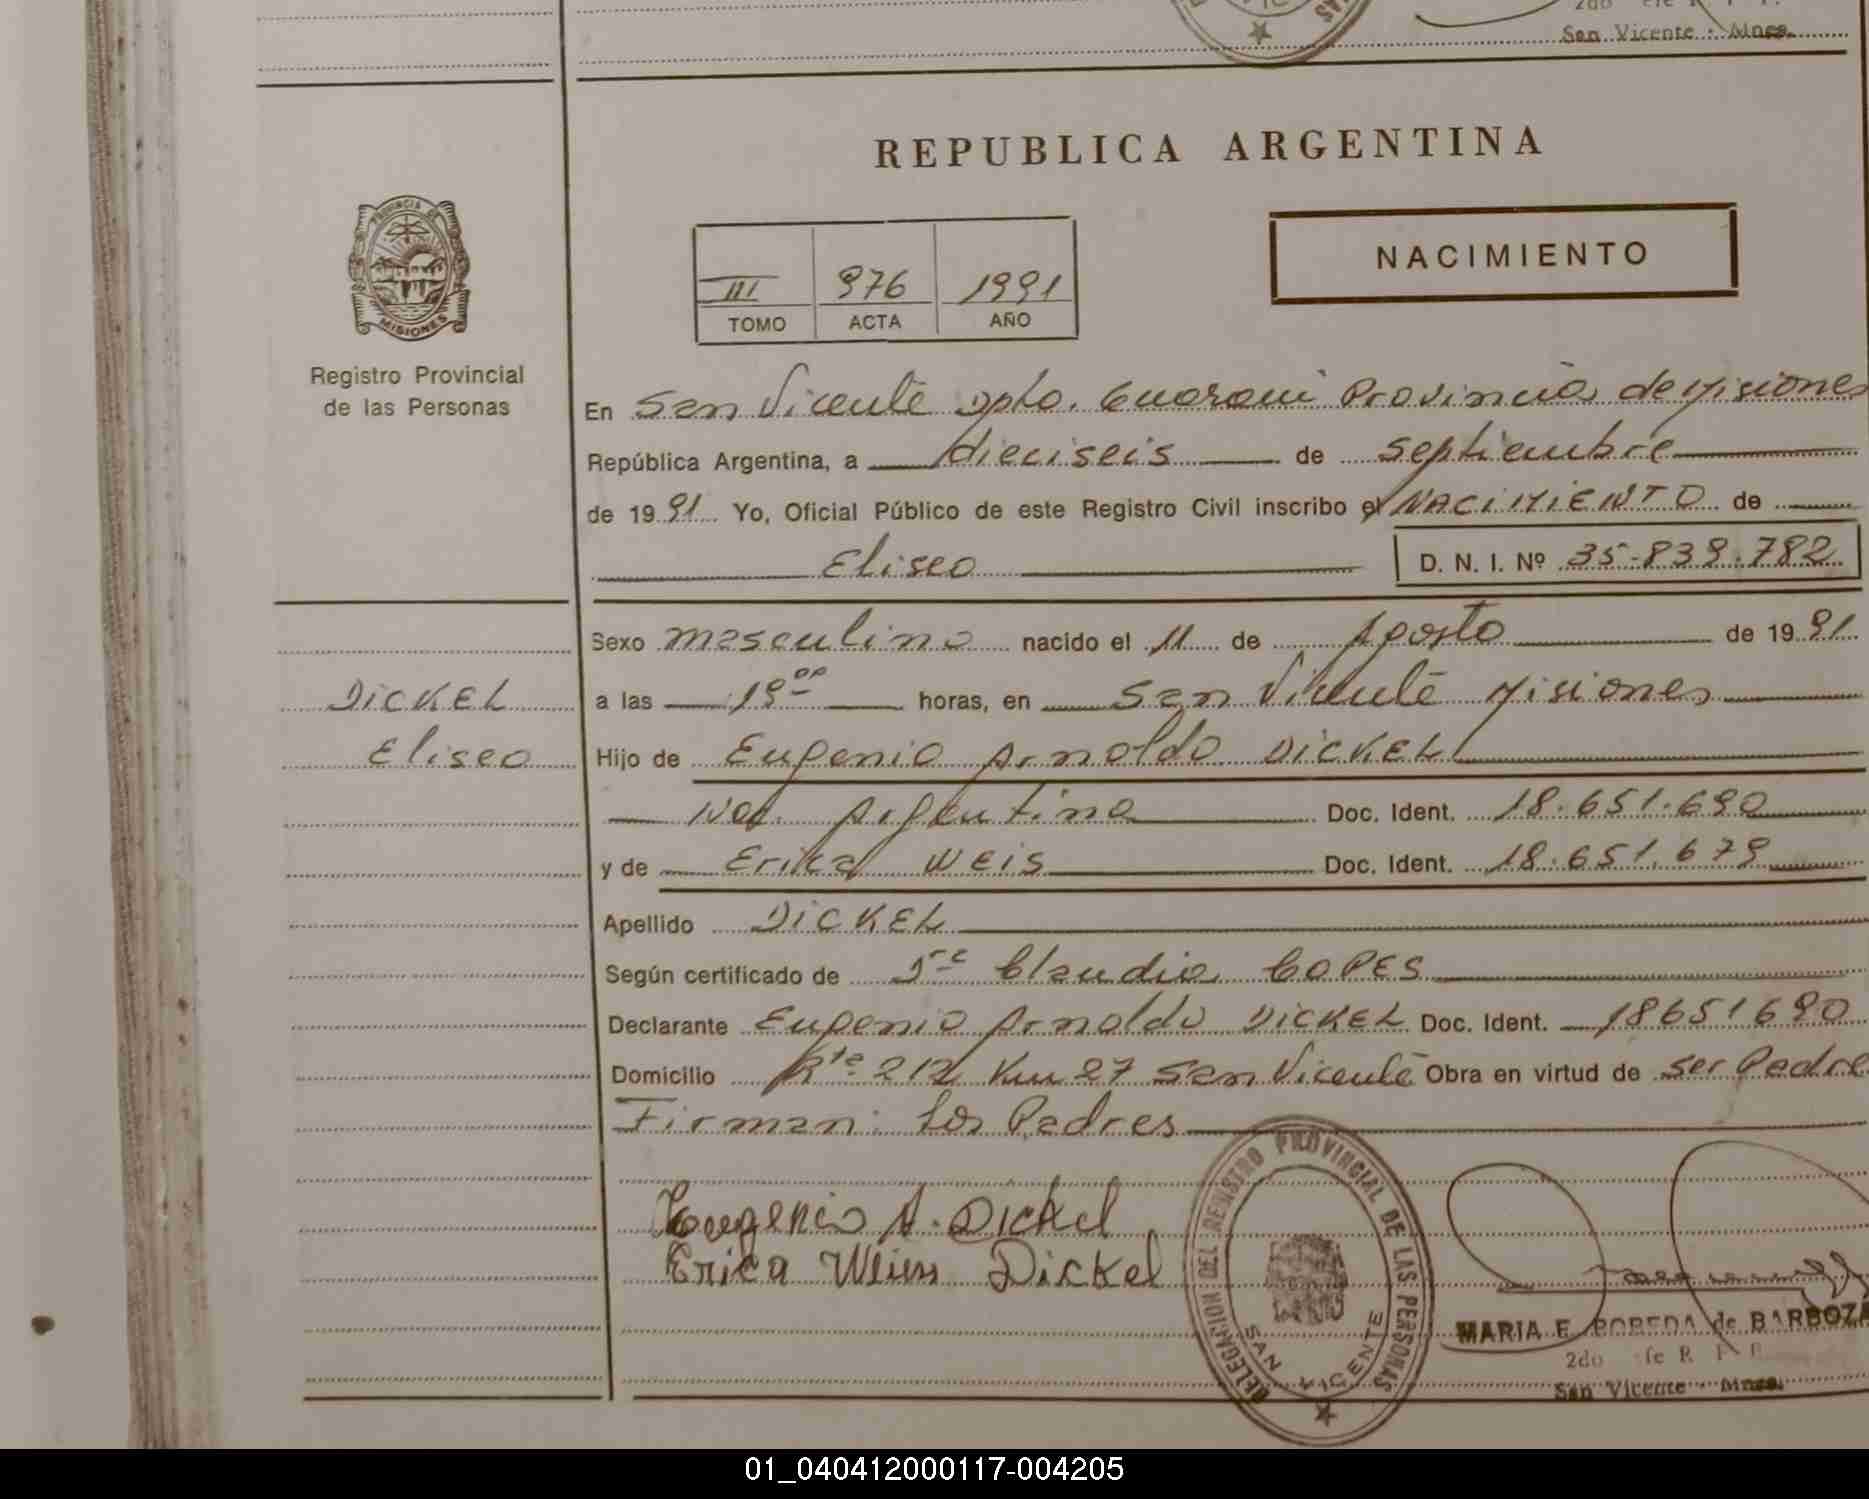 San Vicente - Mnes.
REPUBLICA ARGENTINA
PROVINCIA DE
MISIONES
Registro Provincial
de las Personas
III 976 1991
TOMO ACTA AÑO
NACIMIENTO
En San Vicente Dpto. Guarani Provincia de Misiones
República Argentina, a dieciseis de septiembre
de 19 91 Yo, Oficial Público de este Registro Civil inscribo el NACIMIENTO de
Eliseo D. N. I. Nº 35-839.782
Sexo masculino nacido el 11 de Agosto de 19 91
DICKEL
a las 19 00 horas, en San Vicente Misiones
Eliseo
Hijo de Eugenio Arnoldo DICKEL
Nac. Argentina Doc. Ident. 18.651.690
y de Erica WEIS Doc. Ident. 18.651.679
Apellido DICKEL
Según certificado de Claudia COPES
Declarante Eugenio Arnoldo DICKEL Doc. Ident. 18651690
Domicilio Rta 212 Km 27 San Vicente Obra en virtud de ser Padre
Firman: Los Padres
Eugenio A. Dickel
Erica Dickel
DELEGACION DEL REGISTRO PROVINCIAL DE LAS PERSONAS
SAN VICENTE
MARIA E. de BARBOZA
2do
San Vicente - Mnes.
01_040412000117-004205